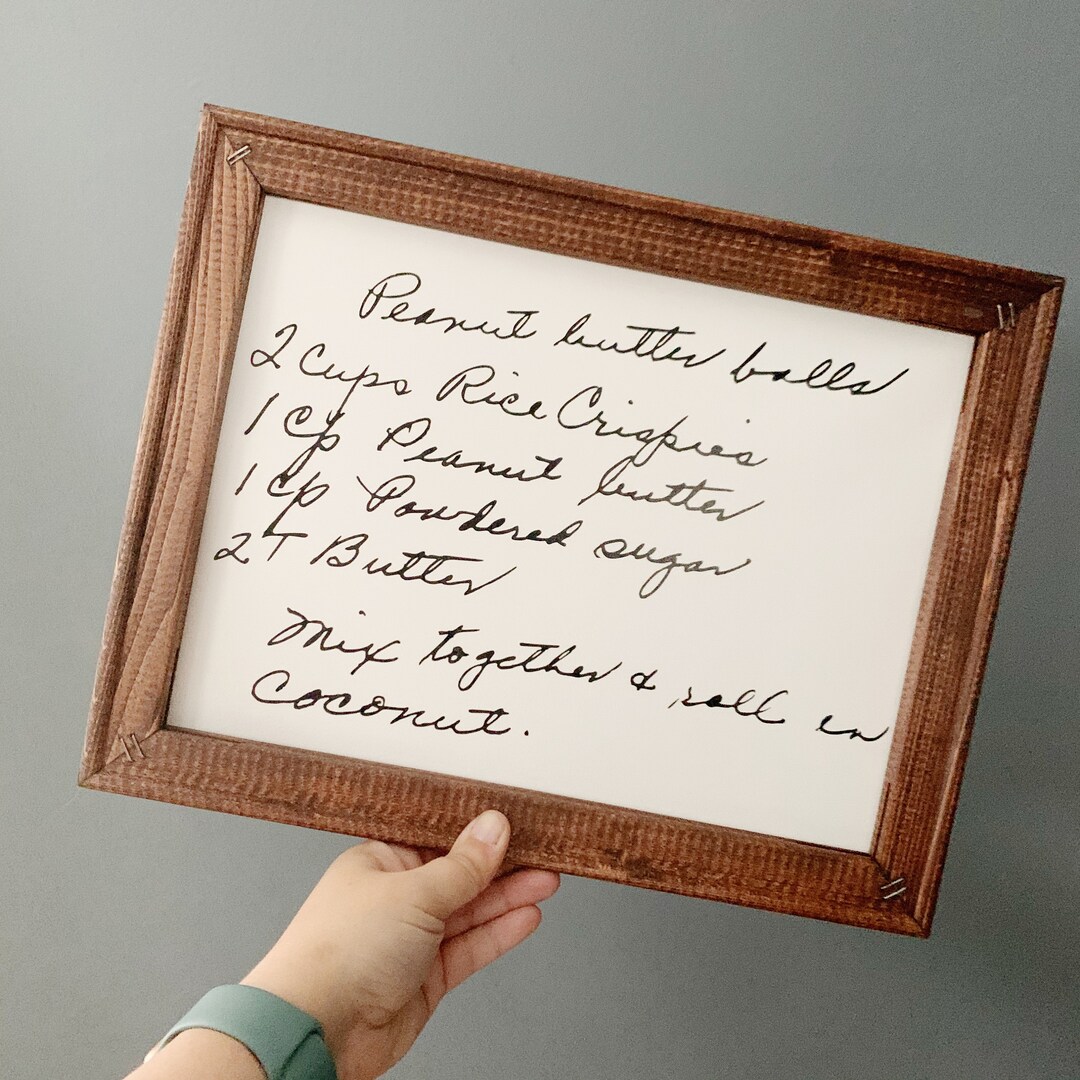 Peanut butter balls
2 Cups Rice Crispies
1 cp Peanut butter
1 cp Powdered sugar
2T Butter
Mix together & roll in
Coconut.